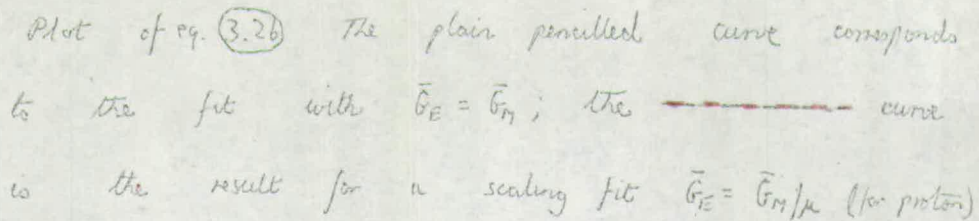 Plot of eq. (3.26) The plain pencilled curve corresponds
to the fit with ḠE = ḠM; the ------- curve
is the result for a scaling fit ḠE = ḠM/μ (for proton)